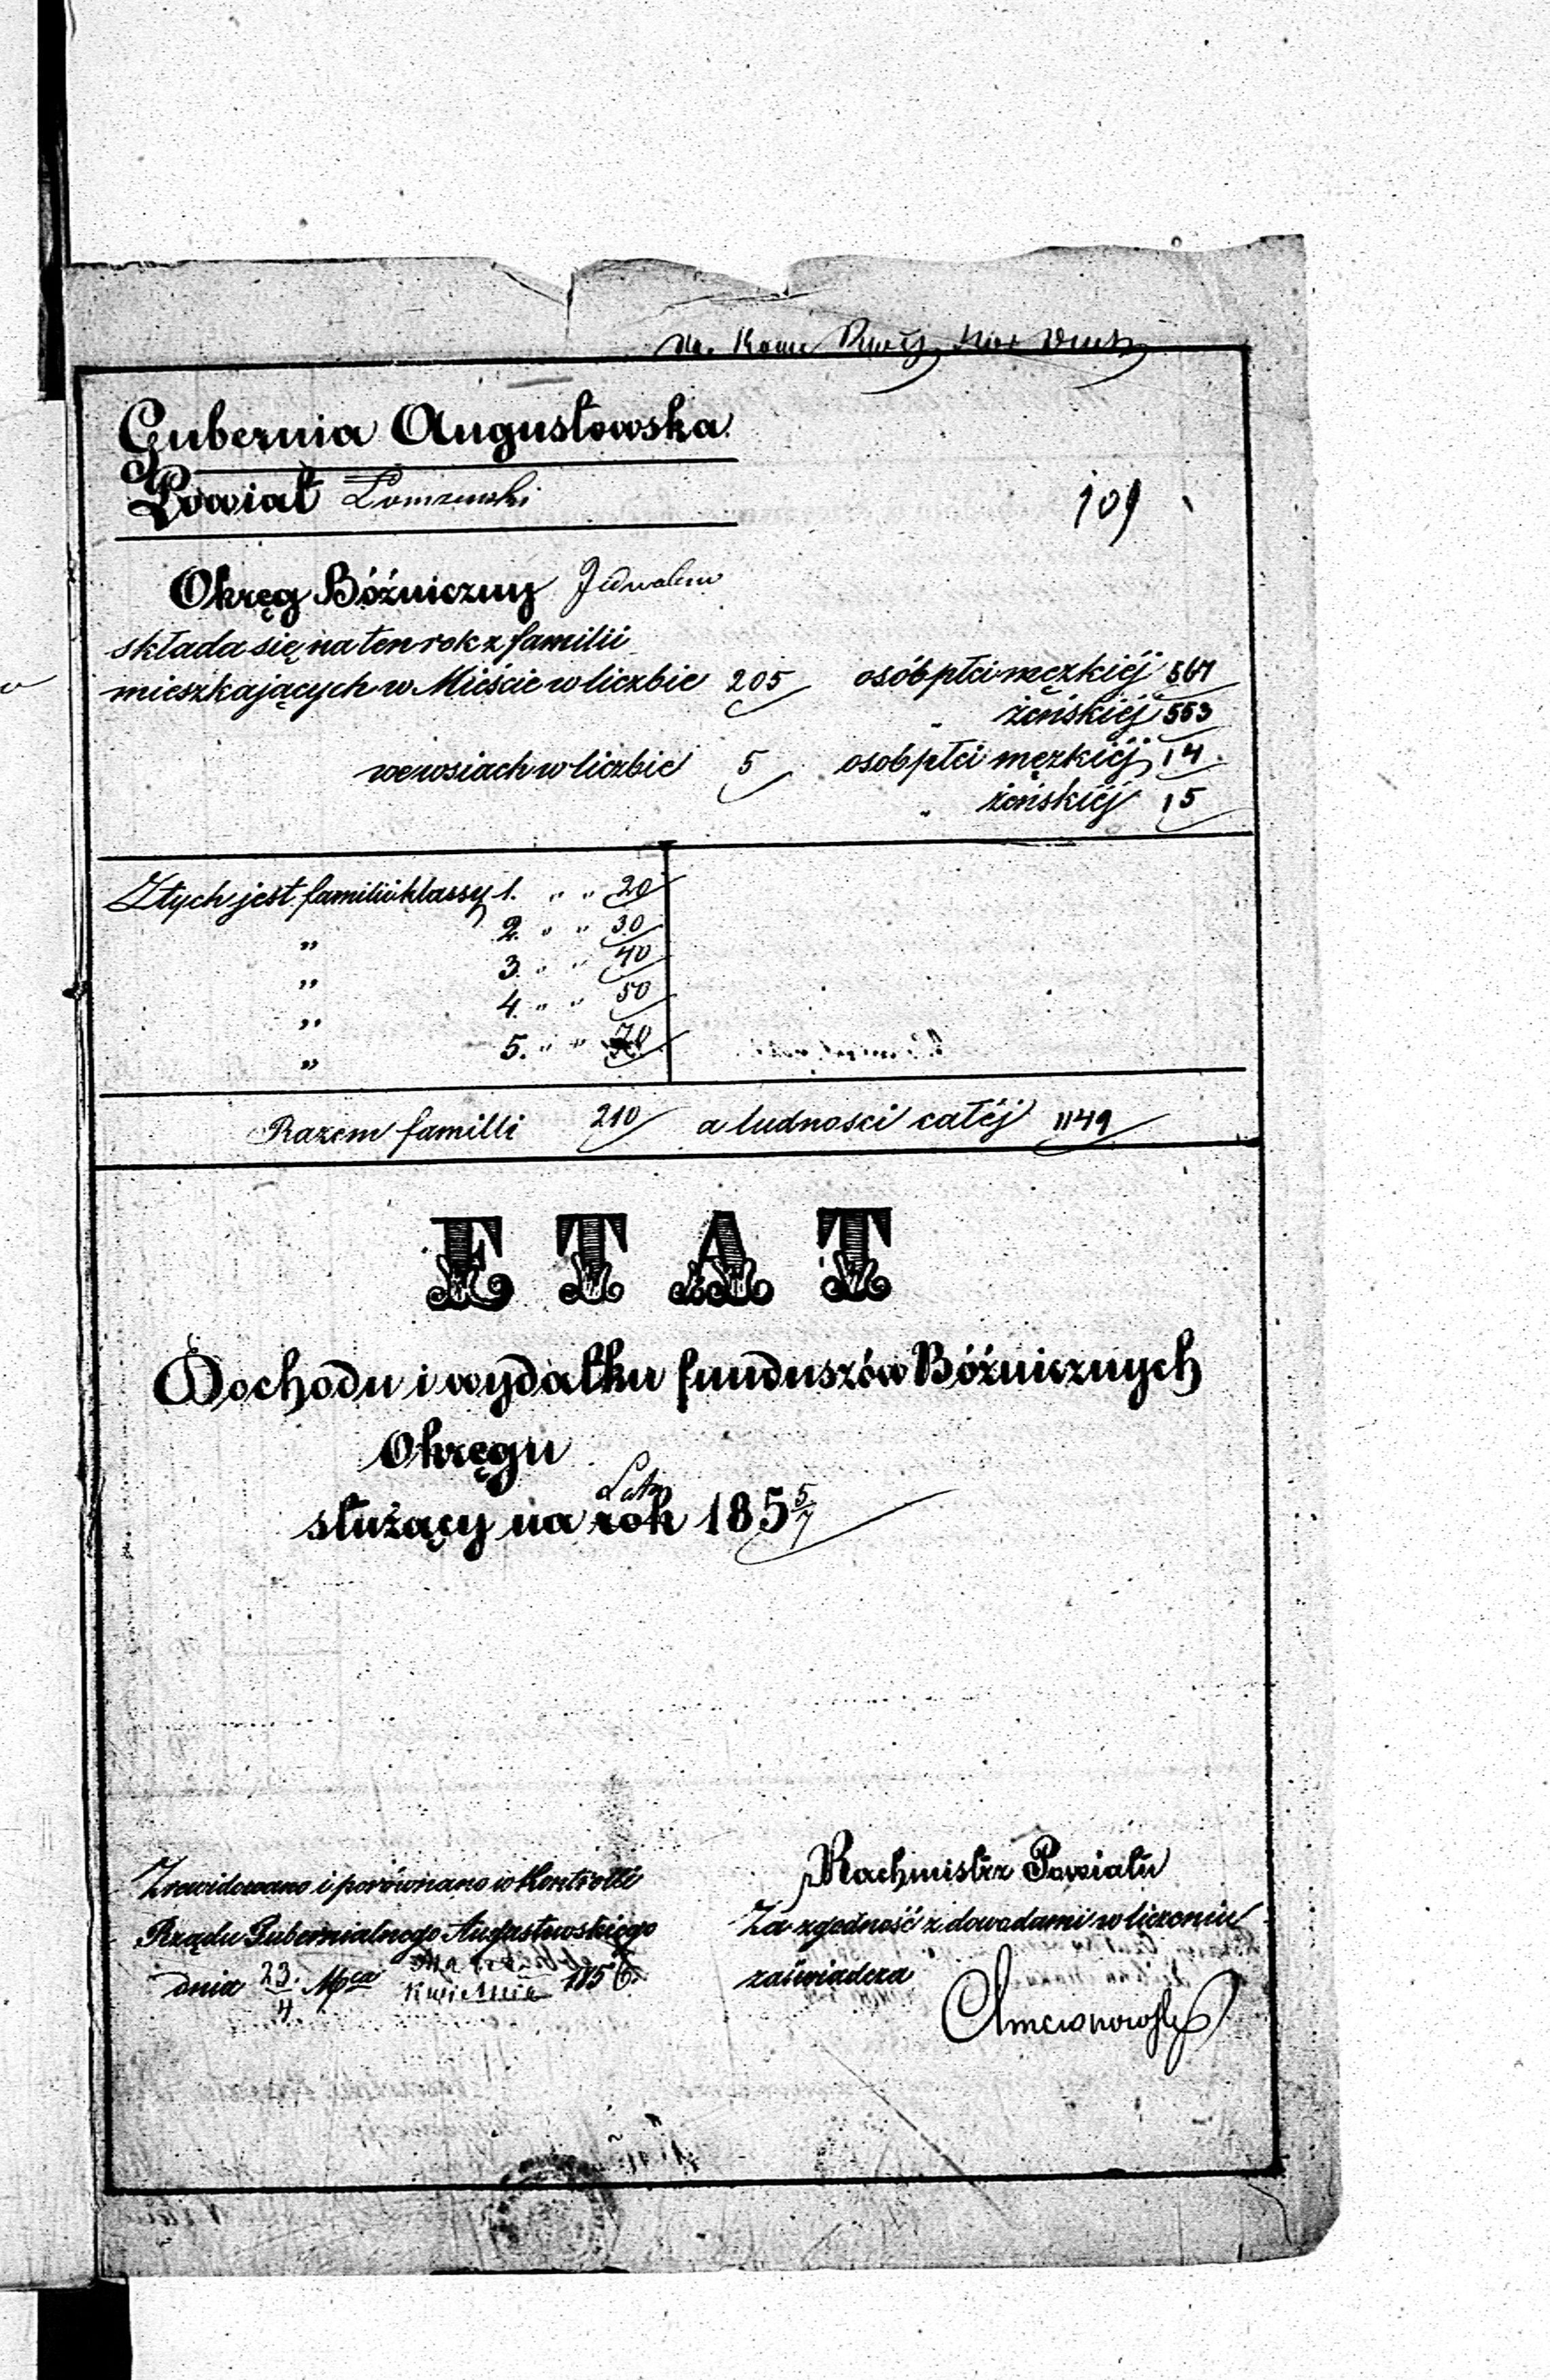 Gubernia Augustowska
Powiat Łomżyński
109
Okręg Bóźniczny Jedwabno
składa się na ten rok z familii
mieszkających w Mieście w liczbie 205 osób płci męzkiéj 567
„ żeńskiéj 553
we wsiach w liczbie 5 osob płci męzkiéj 14
„ żeńskiéj 15
Z tych jest familii klassy 1. „ „ 20
„ 2. „ „ 30
„ 3. „ „ 40
„ 4. „ „ 50
„ 5. „ „ 70
Razem familli 210 a ludnosci całéj 1149
ETAT
Dochodu i wydatku funduszów Bóźnicznych
Okręgu
Lata
służący na rok 185 5/7
Rachmistrz Powiatu
Zrewidowano i porównano w Kontrolli
Rządu Gubernialnego Augustowskiego
Za zgodność z dowodami w liczeniu
dnia 23/4 Mca Kwietnia 1856.
zaświadcza